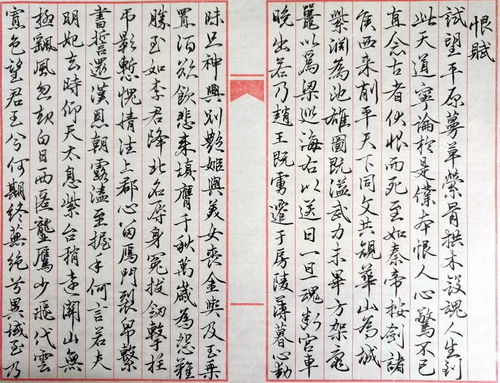 恨賦
試望平原蔓草縈骨拱木斂魂人生到
此天道寧論於是僕本恨人心驚不已
直念古者伏恨而死至如秦帝按劍諸
侯西来削平天下同文共規華山為城
紫淵為池雄圖既溢武力未畢方架黿
鼉以為梁巡海右以送日一旦魂斷宮車
晚出若乃趙王既虜遷于房陵薄暮心動
昧旦神興別艷姬與美女喪金輿及玉乘
置酒欲飲悲來填膺千秋萬歲為怨難
勝至如李君降北名辱身冤拔劍擊柱
吊影慙愧情往上郡心留鴈門裂帛繫
書誓還漢恩朝露溘至握手何言若夫
明妃去時仰天太息紫台稍遠關山無
極飄風忽起白日西匿隴鴈少飛代雲
寡色望君王兮何期終蕪絕兮異域至乃